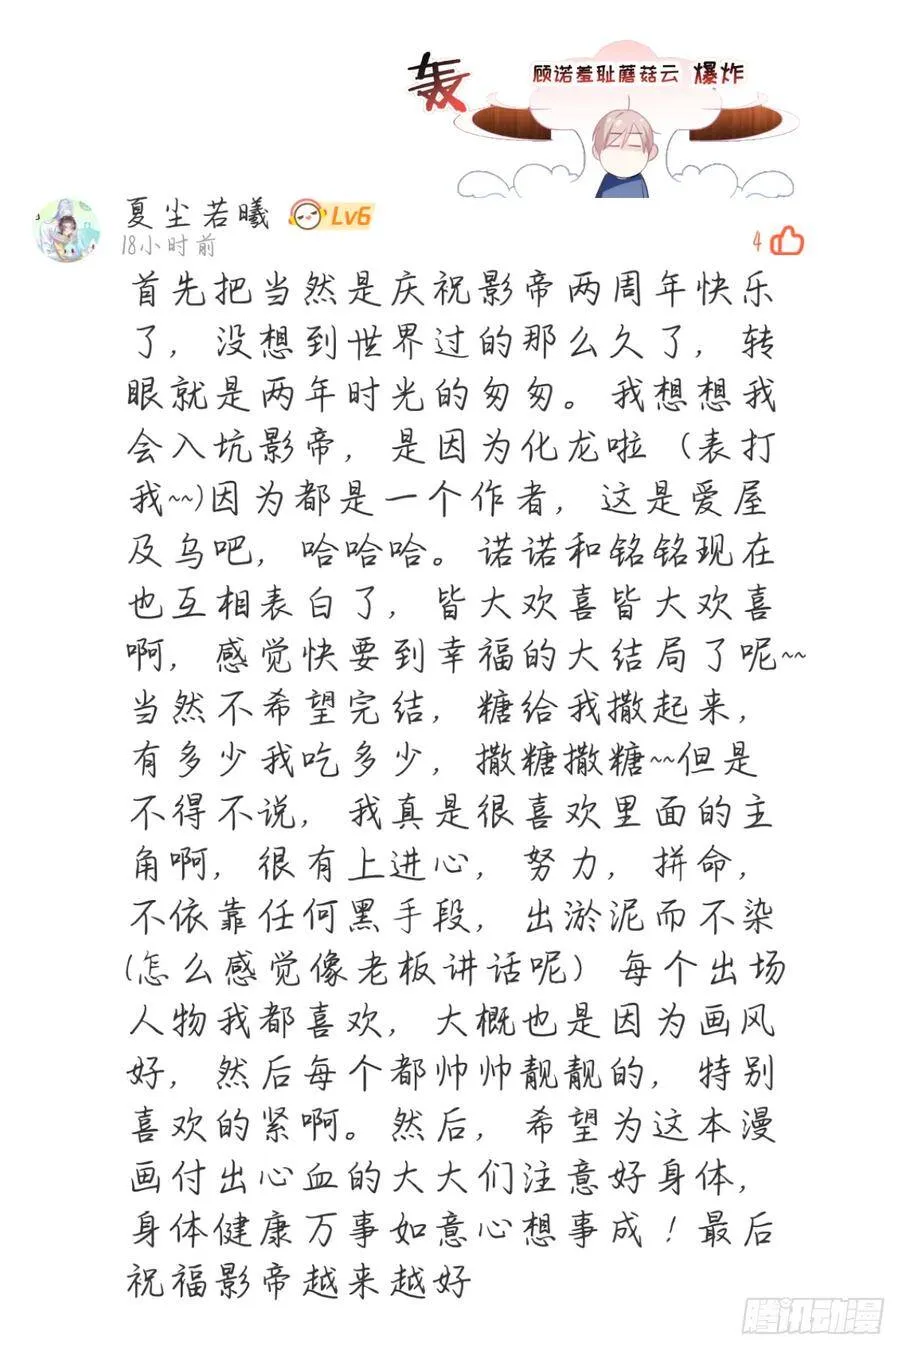 轰
顾诺羞耻蘑菇云 爆炸
夏尘若曦 Lv6
18小时前 4
首先把当然是庆祝影帝两周年快乐
了，没想到世界过的那么久了，转
眼就是两年时光的匆匆。我想想我
会入坑影帝，是因为化龙啦（表打
我~~)因为都是一个作者，这是爱屋
及乌吧，哈哈哈。诺诺和铭铭现在
也互相表白了，皆大欢喜皆大欢喜
啊，感觉快要到幸福的大结局了呢~~
当然不希望完结，糖给我撒起来，
有多少我吃多少，撒糖撒糖~~但是
不得不说，我真是很喜欢里面的主
角啊，很有上进心，努力，拼命，
不依靠任何黑手段，出淤泥而不染
(怎么感觉像老板讲话呢） 每个出场
人物我都喜欢，大概也是因为画风
好，然后每个都帅帅靓靓的，特别
喜欢的紧啊。然后，希望为这本漫
画付出心血的大大们注意好身体，
身体健康万事如意心想事成！最后
祝福影帝越来越好
腾讯动漫